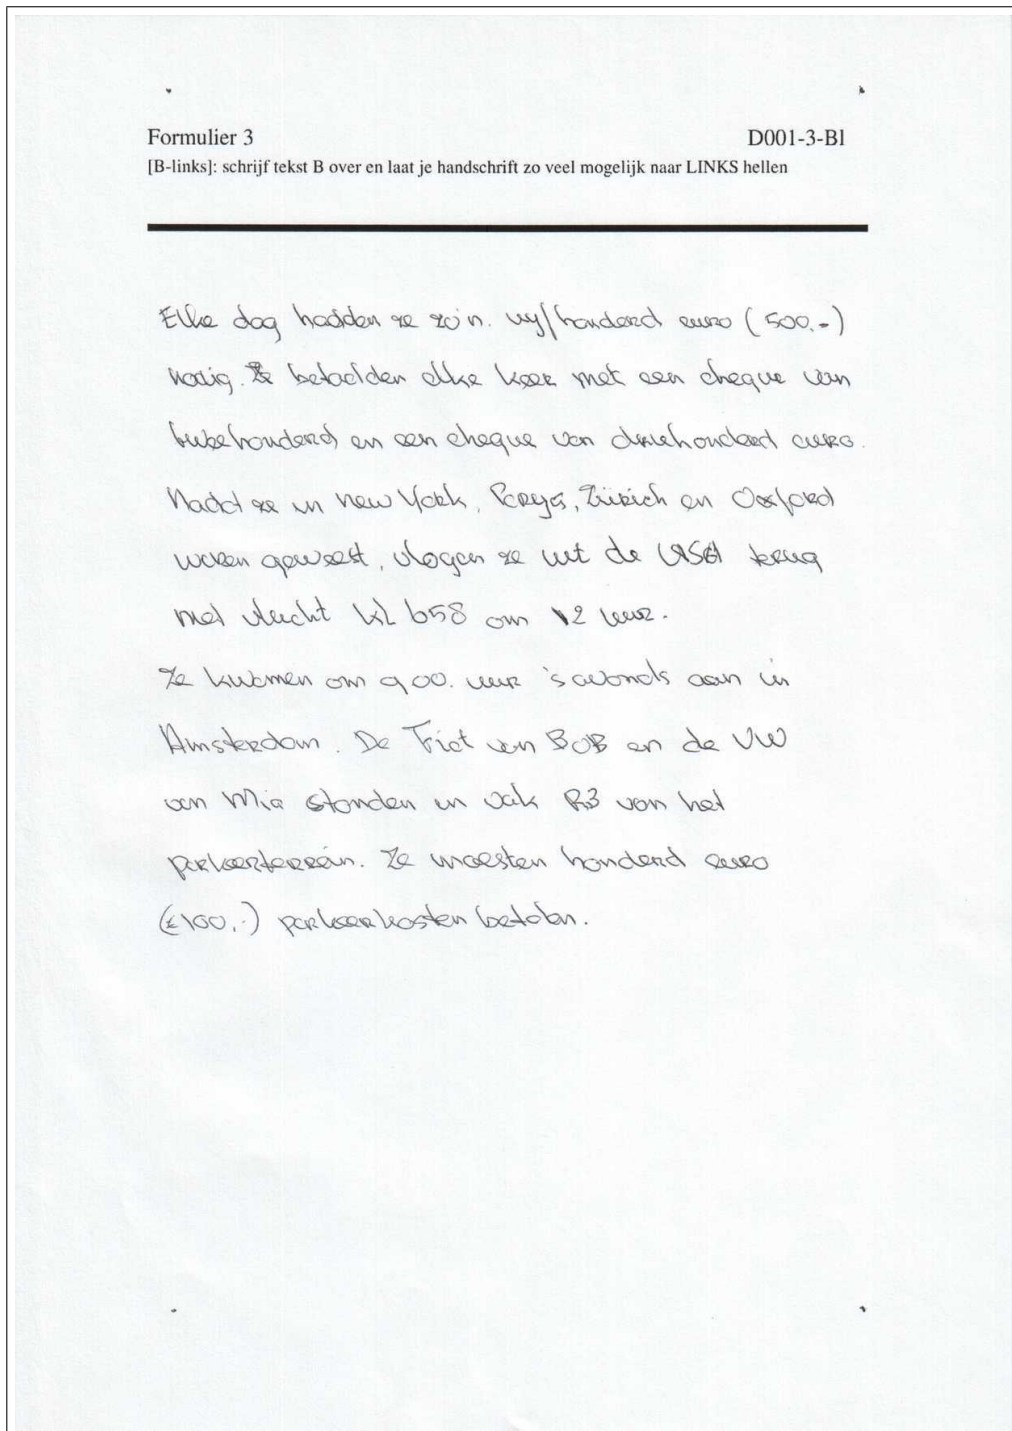 Formulier 3 D001-3-Bl
[B-links]: schrijf tekst B over en laat je handschrift zo veel mogelijk naar LINKS hellen
Elke dag hadden ze zo'n. vijfhonderd euro (500,-)
nodig. Ze betaalden elke keer met een cheque van
tweehonderd en een cheque van driehonderd euro.
Nadat ze in New York, Parijs, Zürich en Oxford
waren geweest, vlogen ze uit de USA terug
met vlucht KL 658 om 12 uur.
Ze kwamen om 9 00. uur 's avonds aan in
Amsterdam. De Fiat van BOB en de VW
van Mia stonden in vak R3 van het
parkeerterrein. Ze moesten honderd euro
(£100,-) parkeerkosten betalen.